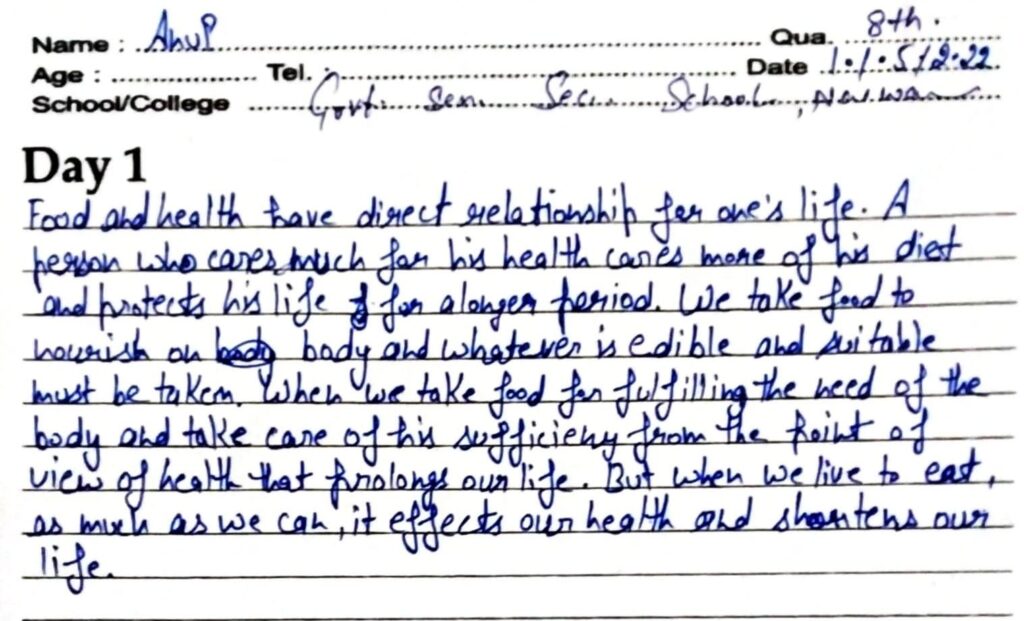 Name : Anup Qua. 8th.
Age : Tel. : Date
School/College Govt. Sen. Sec. School,
Day 1
Food and health have direct relationship for one's life. A
person who cares much for his health cares more of his diet
and protects his life for a longer period. We take food to
nourish on body and whatever is edible and suitable
must be taken. When we take food for fulfilling the need of the
body and take care of his sufficieny from the point of
view of health that prolongs our life. But when we live to east,
as much as we can, it effects our health and shortens our
life.